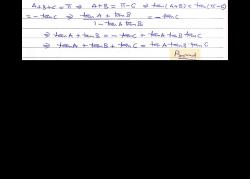 A+B+C = π ⇒ A+B = π-C ⇒ tan(A+B) = tan(π-C)
= -tanC ⇒ tanA + tanB / 1 - tanA tanB = -tanC
⇒ tanA + tanB = -tanC + tanA tanB tanC
⇒ tanA + tanB + tanC = tanA tanB tanC
Proved